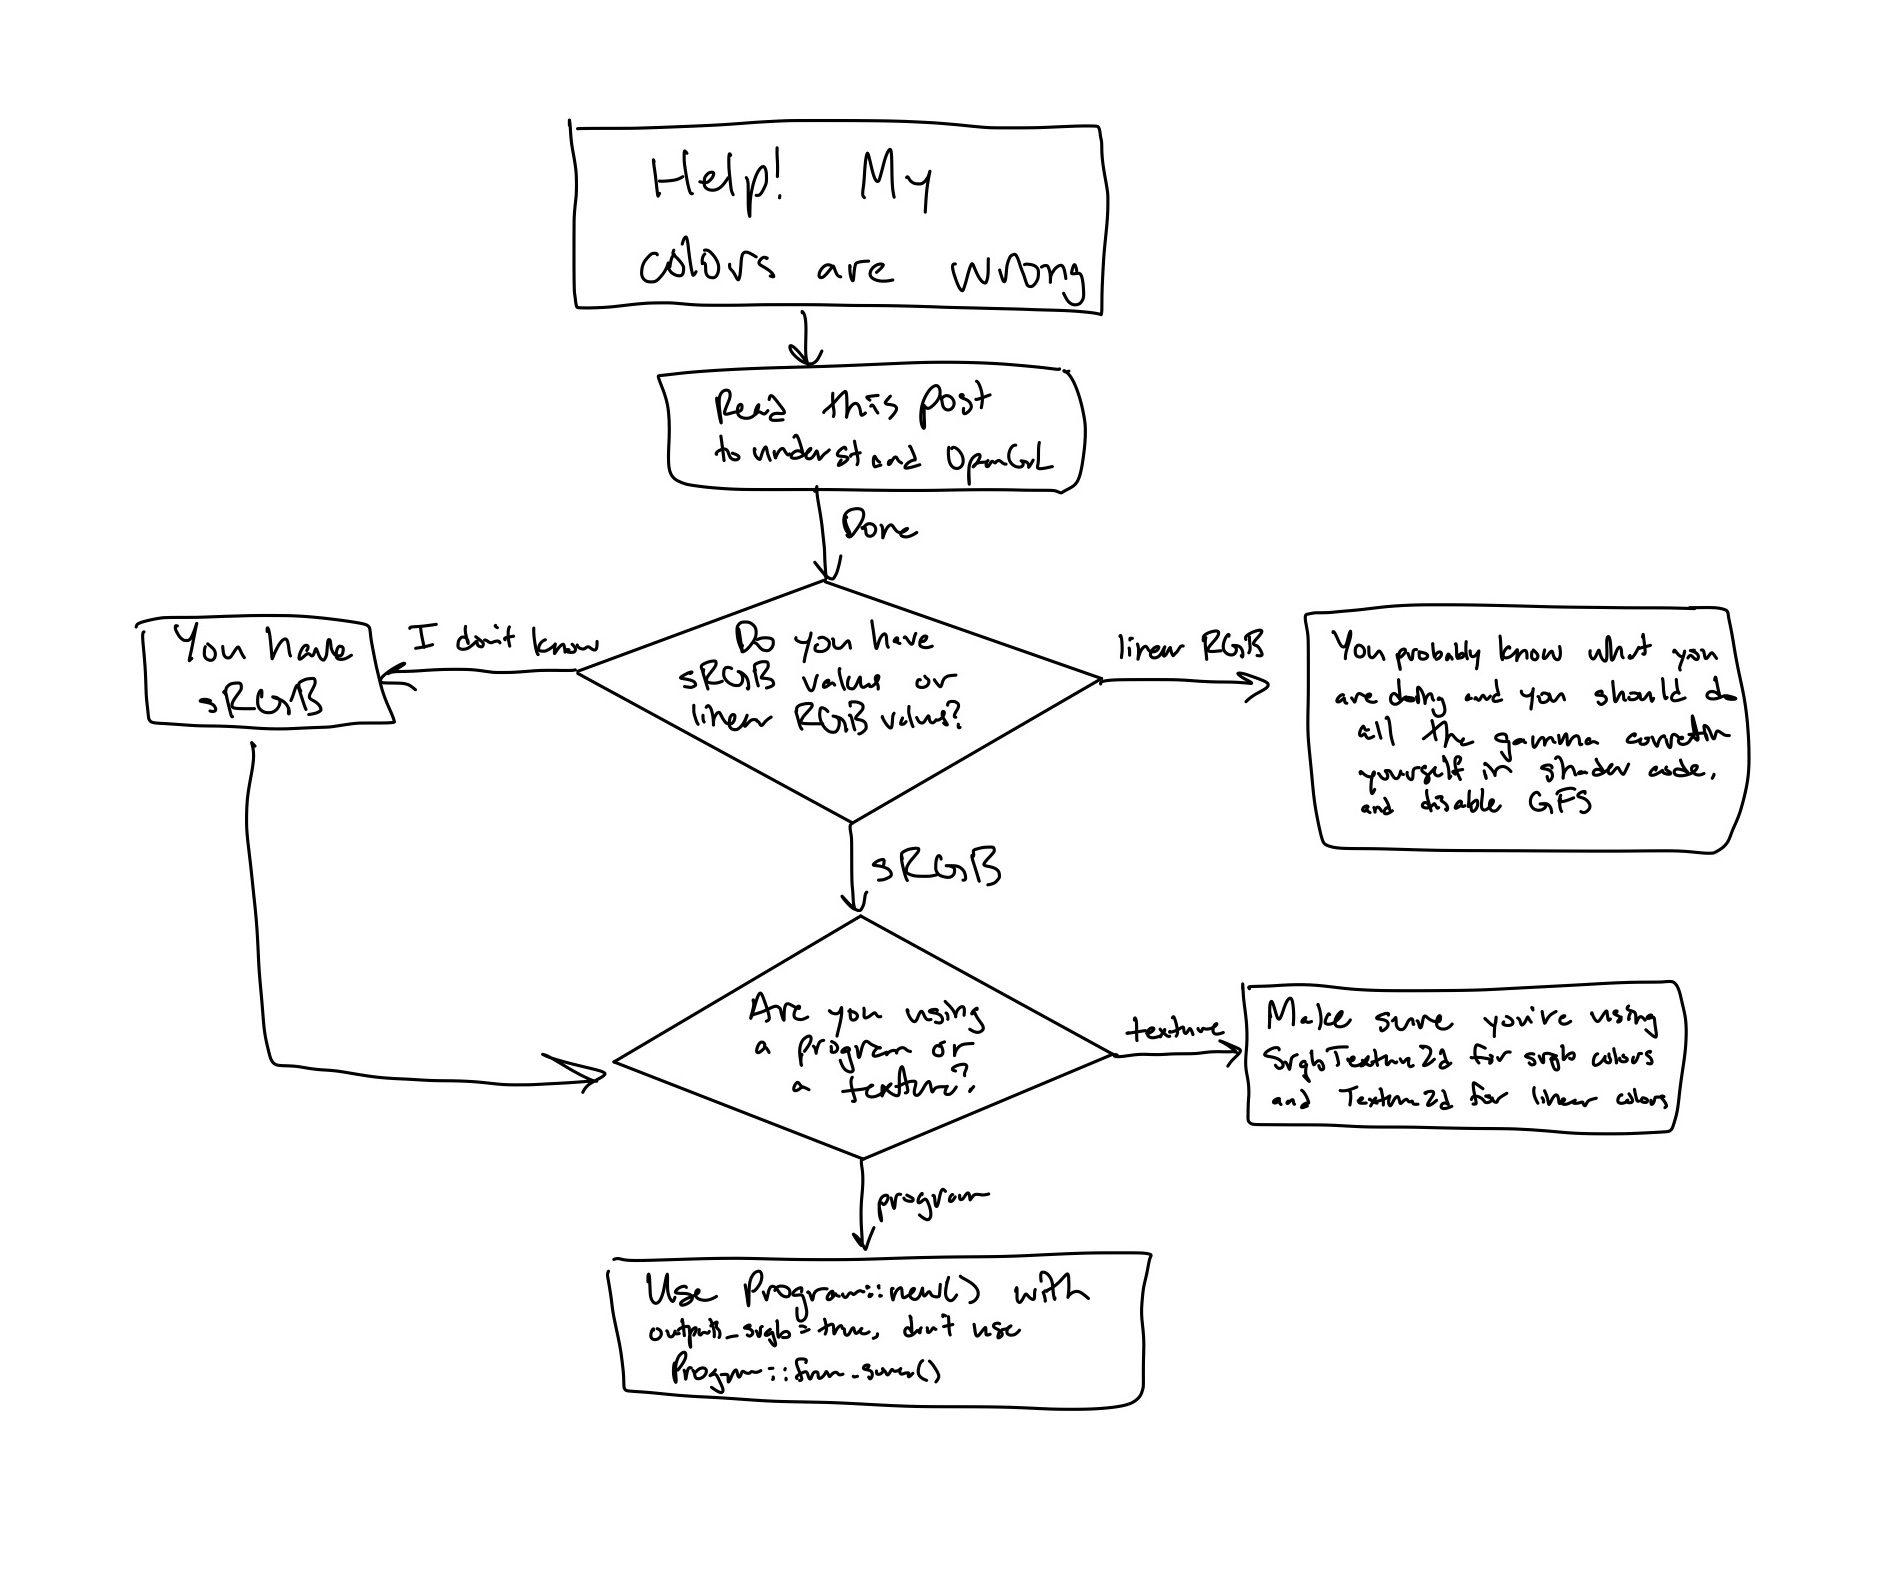 Help! My
colors are wrong
Read this post
to understand OpenGL
Done
I don't know
You have
sRGB
Do you have
sRGB values or
linear RGB values?
linear RGB
You probably know what you
are doing and you should do
all the gamma correction
yourself in shader code,
and disable GFS
sRGB
Are you using
a program or
a texture?
texture
Make sure you're using
SrgbTexture2d for srgb colors
and Texture2d for linear colors
program
Use Program::new() with
outputs_srgb = true, don't use
Program::from_source()